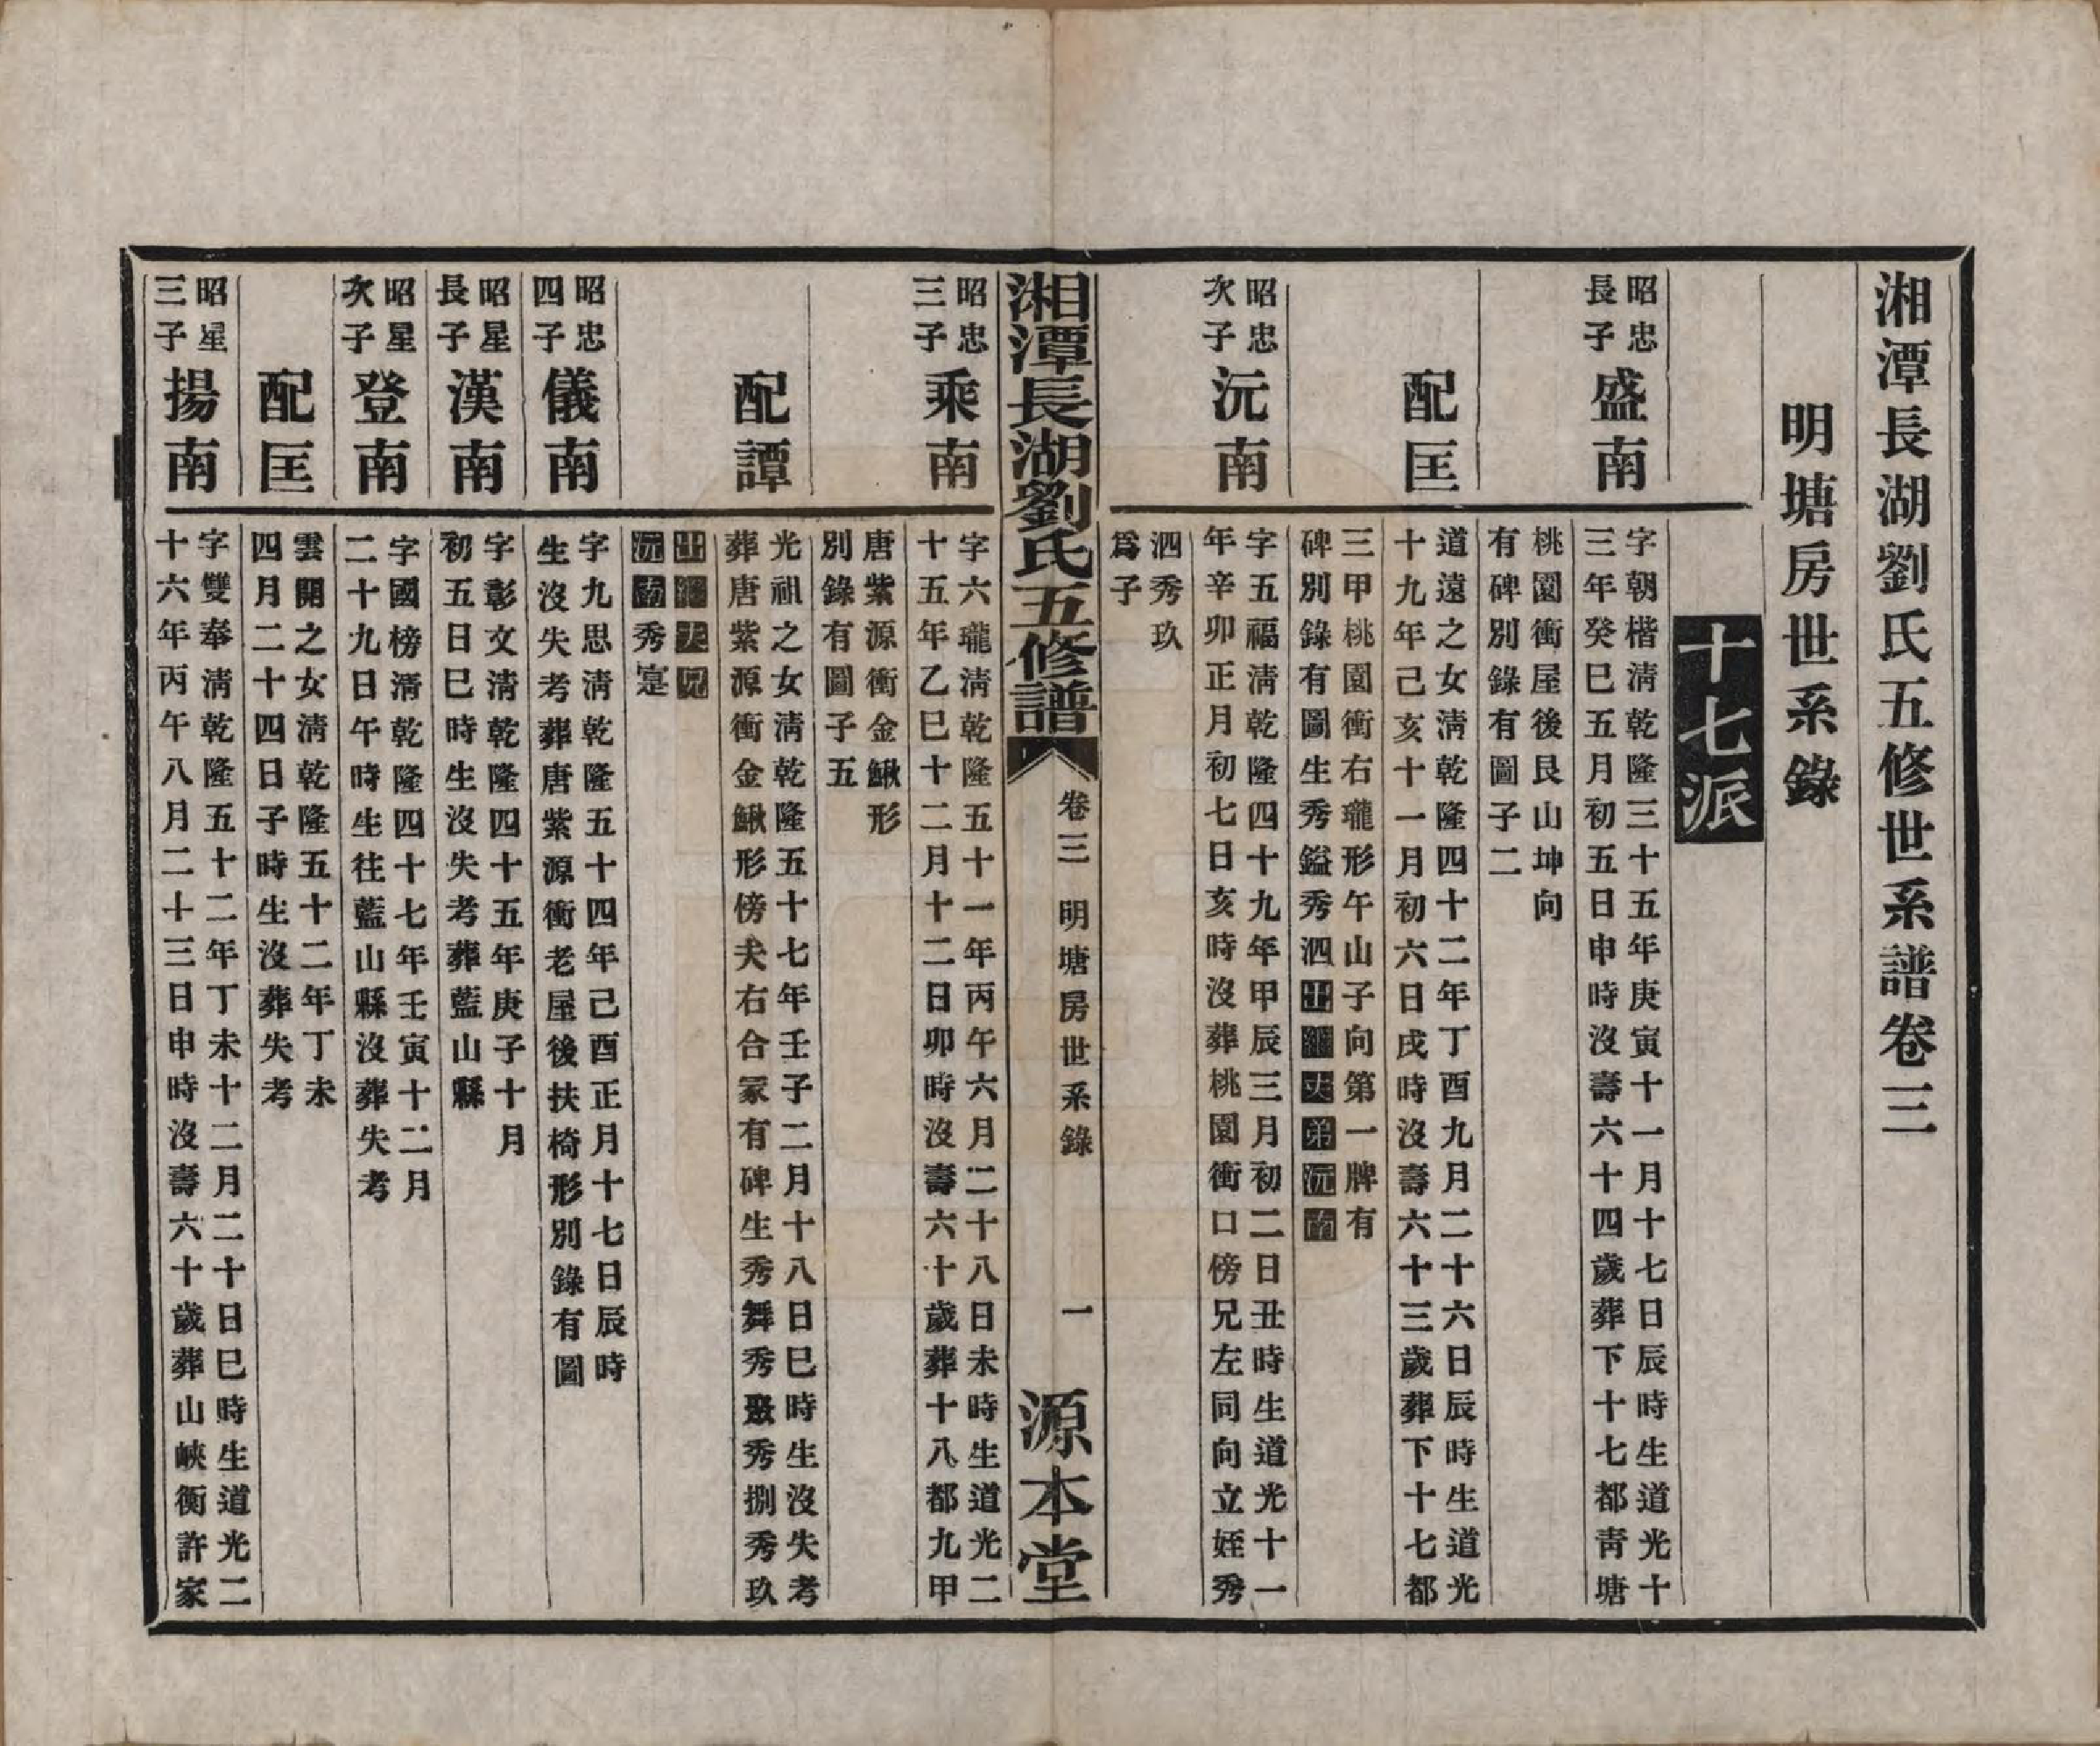 湘潭長湖劉氏五修世系譜卷三
明塘房世系錄
十七派
昭忠
長子
盛南
字朝楷淸乾隆三十五年庚寅十一月十七日辰時生道光十
三年癸巳五月初五日申時沒壽六十四歲葬下十七都靑塘
桃園衝屋後艮山坤向
有碑別錄有圖子二
配匡
道遠之女淸乾隆四十二年丁酉九月二十六日辰時生道光
十九年己亥十一月初六日戌時沒壽六十三歲葬下十七都
三甲桃園衝右瓏形午山子向第一牌有
碑別錄有圖生秀鎰秀泗出繼夫弟沅南
昭忠
次子
沅南
字五福淸乾隆四十九年甲辰三月初二日丑時生道光十一
年辛卯正月初七日亥時沒葬桃園衝口傍兄左同向立姪秀
泗秀玖
爲子
湘潭長湖劉氏五修譜
卷三 明塘房世系錄
一
源本堂
昭忠
三子
乘南
字六瓏淸乾隆五十一年丙午六月二十八日未時生道光二
十五年乙巳十二月十二日卯時沒壽六十歲葬十八都九甲
唐紫源衝金鰍形
別錄有圖子五
配譚
光祖之女淸乾隆五十七年壬子二月十八日巳時生沒失考
葬唐紫源衝金鰍形傍夫右合冢有碑生秀舞秀蹑秀捌秀玖
出繼夫兄
沅南秀寔
昭忠
四子
儀南
字九思淸乾隆五十四年己酉正月十七日辰時
生沒失考葬唐紫源衝老屋後扶椅形別錄有圖
昭星
長子
漢南
字彰文淸乾隆四十五年庚子十月
初五日巳時生沒失考葬藍山縣
昭星
次子
登南
字國榜淸乾隆四十七年壬寅十二月
二十九日午時生往藍山縣沒葬失考
配匡
雲開之女淸乾隆五十二年丁未
四月二十四日子時生沒葬失考
昭星
三子
揚南
字雙奉淸乾隆五十二年丁未十二月二十日巳時生道光二
十六年丙午八月二十三日申時沒壽六十歲葬山峽衡許家